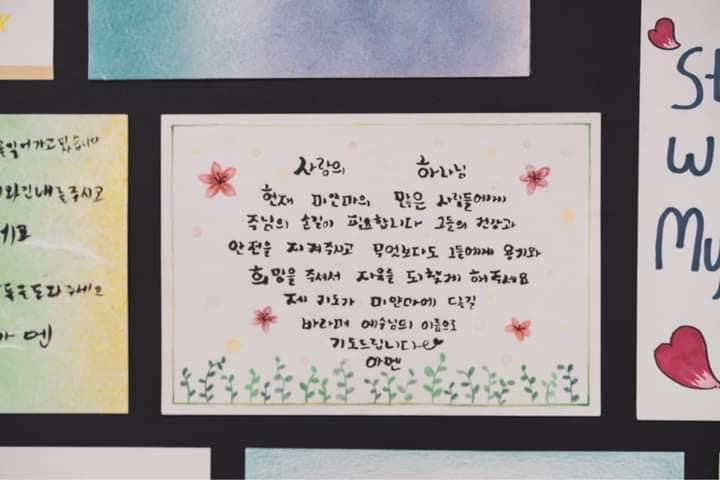 사랑의 하나님
현재 미얀마의 많은 사람들에게
주님의 손길이 필요합니다 그들의 건강과
안전을 지켜주시고 무엇보다도 그들에게 용기와
희망을 주셔서 자유를 되찾게 해주세요
제 기도가 미얀마에 닿길
바라며 예수님의 이름으로
기도드립니다
아멘
어가고있습니다
주시고
주세요
멘
St
W
My